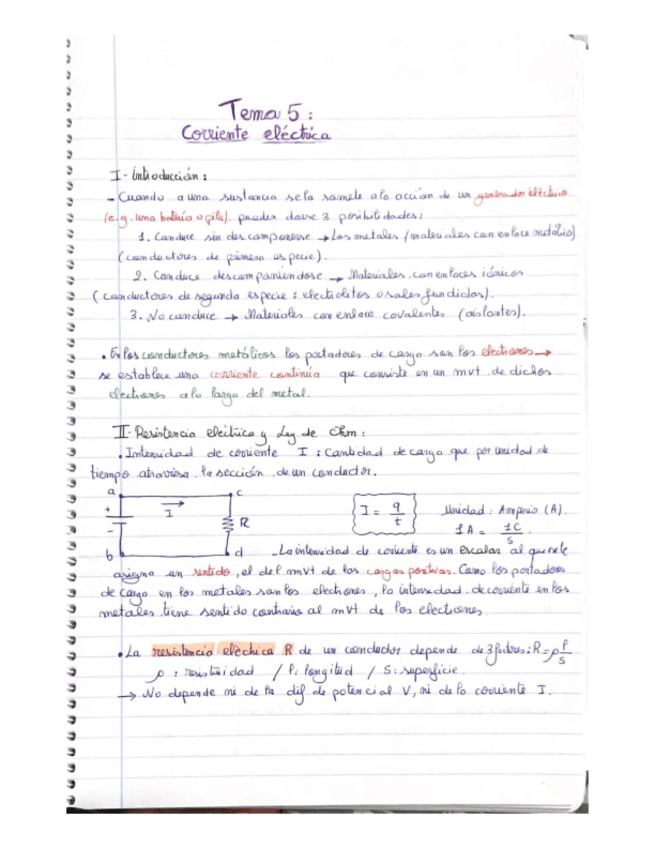 Tema 5 :
Corriente eléctrica
I - introducción :
- Cuando a una sustancia se la somete a la acción de un generador eléctrico
(e.g. una batería o pila). pueden darse 3 posibilidades :
1. Conduce sin descomponerse → Los metales (materiales con enlace metálico)
(conductores de primera especie).
2. Conduce descomponiendose → Materiales con enlaces iónicos
(conductores de segunda especie : electrolitos o sales fundidas).
3. No conduce → Materiales con enlace covalentes (aislantes).
• En los conductores metálicos los portadores de carga son los electrones →
se establece una corriente continúa que consiste en un mvt de dichos
electrones a lo largo del metal.
II - Resistencia eléctrica y Ley de Ohm :
• Intensidad de corriente I : Cantidad de carga que por unidad de
tiempo atraviesa la sección de un conductor.
a c
+ I
- R
b d
I = q/t
Unidad : Amperio (A).
1 A = 1C/s
- La intensidad de corriente es un escalar al que se le
asigna un sentido, el del mvt de las cargas positivas. Como los portadores
de carga en los metales son los electrones, la intensidad de corriente en los
metales tiene sentido contrario al mvt de los electrones.
• La resistencia eléctrica R de un conductor depende de 3 factores : R = ρ l/S
ρ : resistividad / l : longitud / S : superficie.
→ No depende ni de la dif de potencial V, ni de la corriente I.